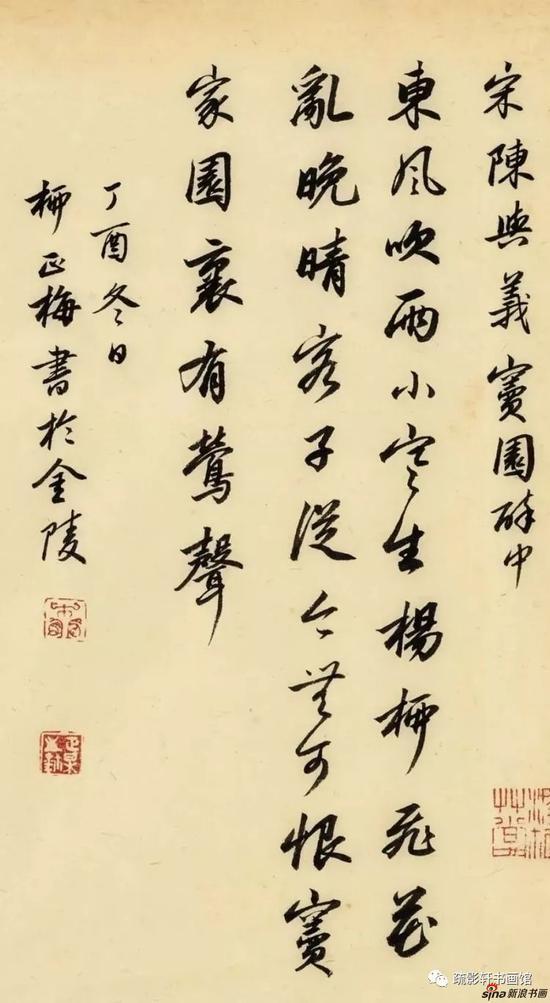 宋陳與義竇園醉中
東風吹雨小寒生楊柳飛花
亂晚晴客子從今無可恨竇
家園裏有鶯聲
丁酉冬日
柳正梅書於金陵
疏影轩书画馆
sina新浪书画